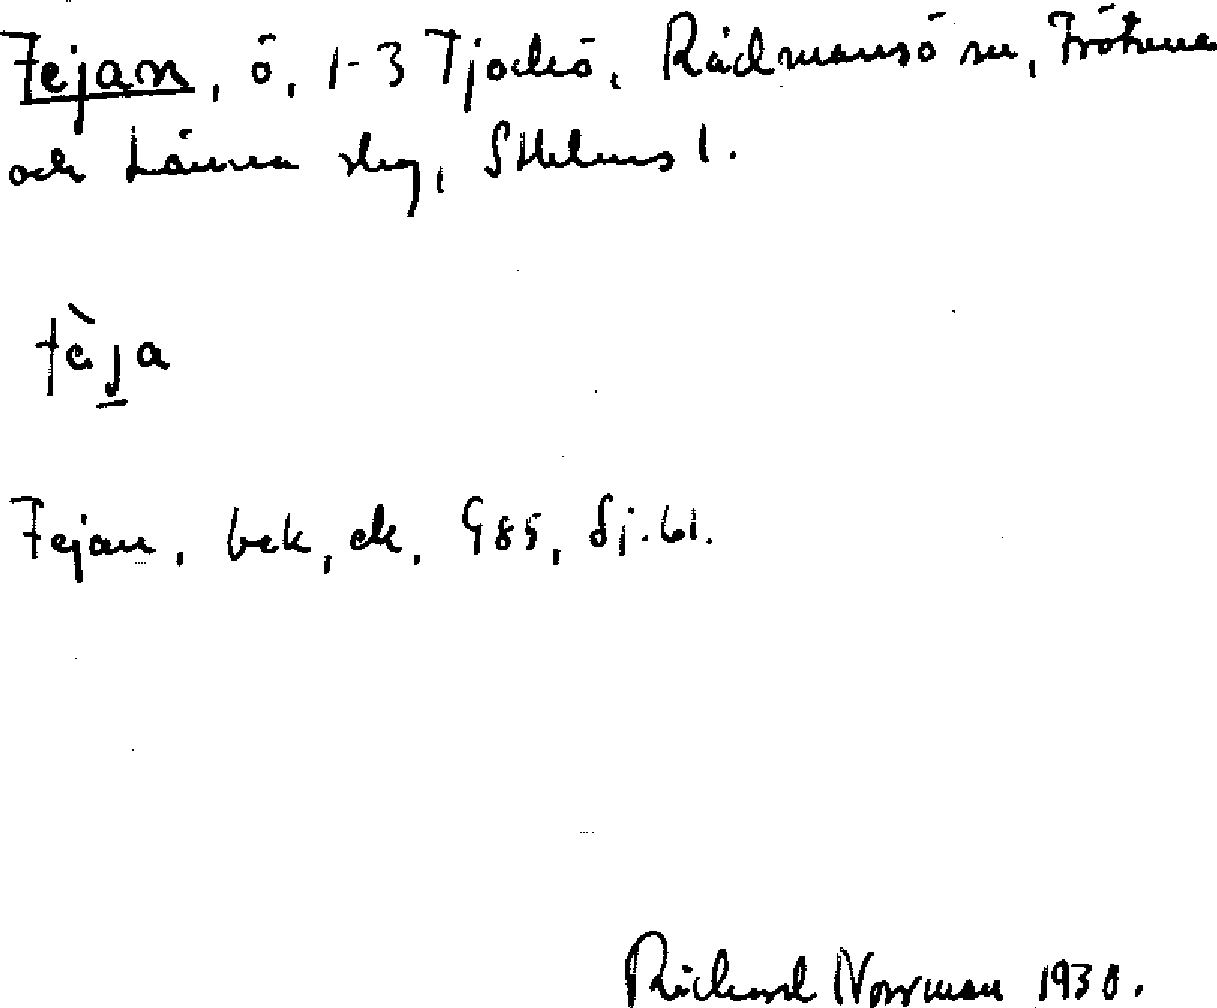 Fejan, ö, 1-3 Tjockö, Rådmansö sn, Frötuna
och Länna slg, Sthlms l.
fèja
Fejan, bek, ek. G85, Sj.61.
Rickard Norrman 1930.